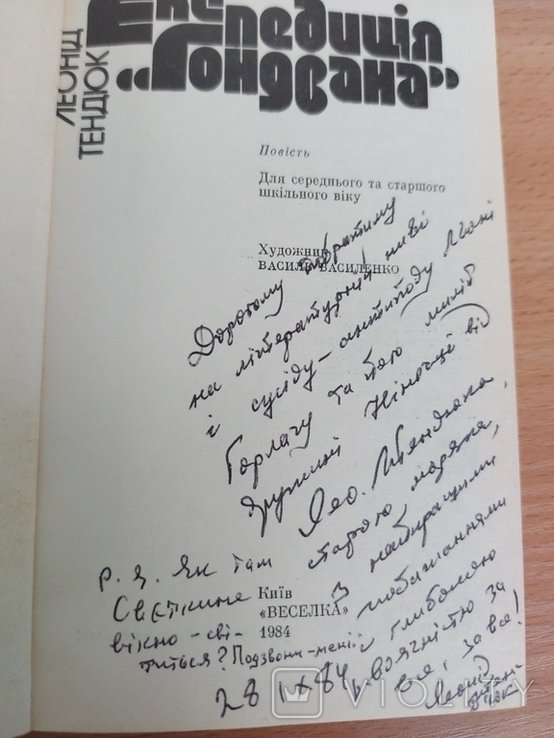 ЛЕОНІД
ТЕНДЮК
Експедиція
«Гондвана»
Повість
Для середнього та старшого
шкільного віку
Художник
ВАСИЛЬ ВАСИЛЕНКО
Дорогому побратиму
на літературній ниві
і сусіду-антиподу Льоні
Горлачу та його милій
дружині Ніночці від
Лео. Тендюка,
старого моряка,
з найкращими
побажаннями
і глибокою
вдячністю за
все, за все!
Леонід
Тендюк
28 IX 84
Р. Я. Як там
Свєткине
вікно - сві-
титься? Подзвони мені
Київ
«ВЕСЕЛКА»
1984
VIOLITY